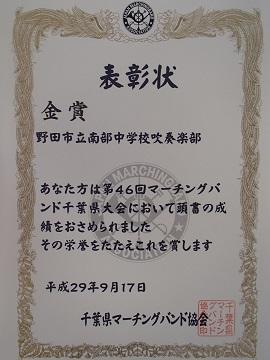 表彰状
金賞
野田市立南部中学校吹奏楽部
あなた方は第46回マーチングバ
ンド千葉県大会において頭書の成
績をおさめられました
その栄誉をたたえこれを賞します
平成29年9月17日
千葉県マーチングバンド協会